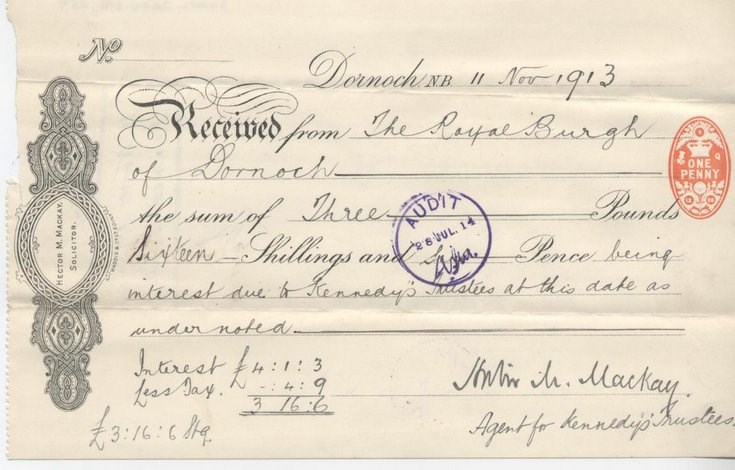 No
Dornoch N.B. 11 Nov 1913
Received from The Royal Burgh
of Dornoch
the sum of Three Pounds
Sixteen Shillings and Six Pence being
interest due to Kennedy's Trustees at this date as
under noted.
Interest £4:1:3
Less Tax. -:4:9
3 16:6
£3:16:6 Stg.
M. Mackay.
Agent for Kennedy's Trustees.
HECTOR M. MACKAY,
SOLICITOR.
AUDIT
28 JUL. 14
ONE
PENNY